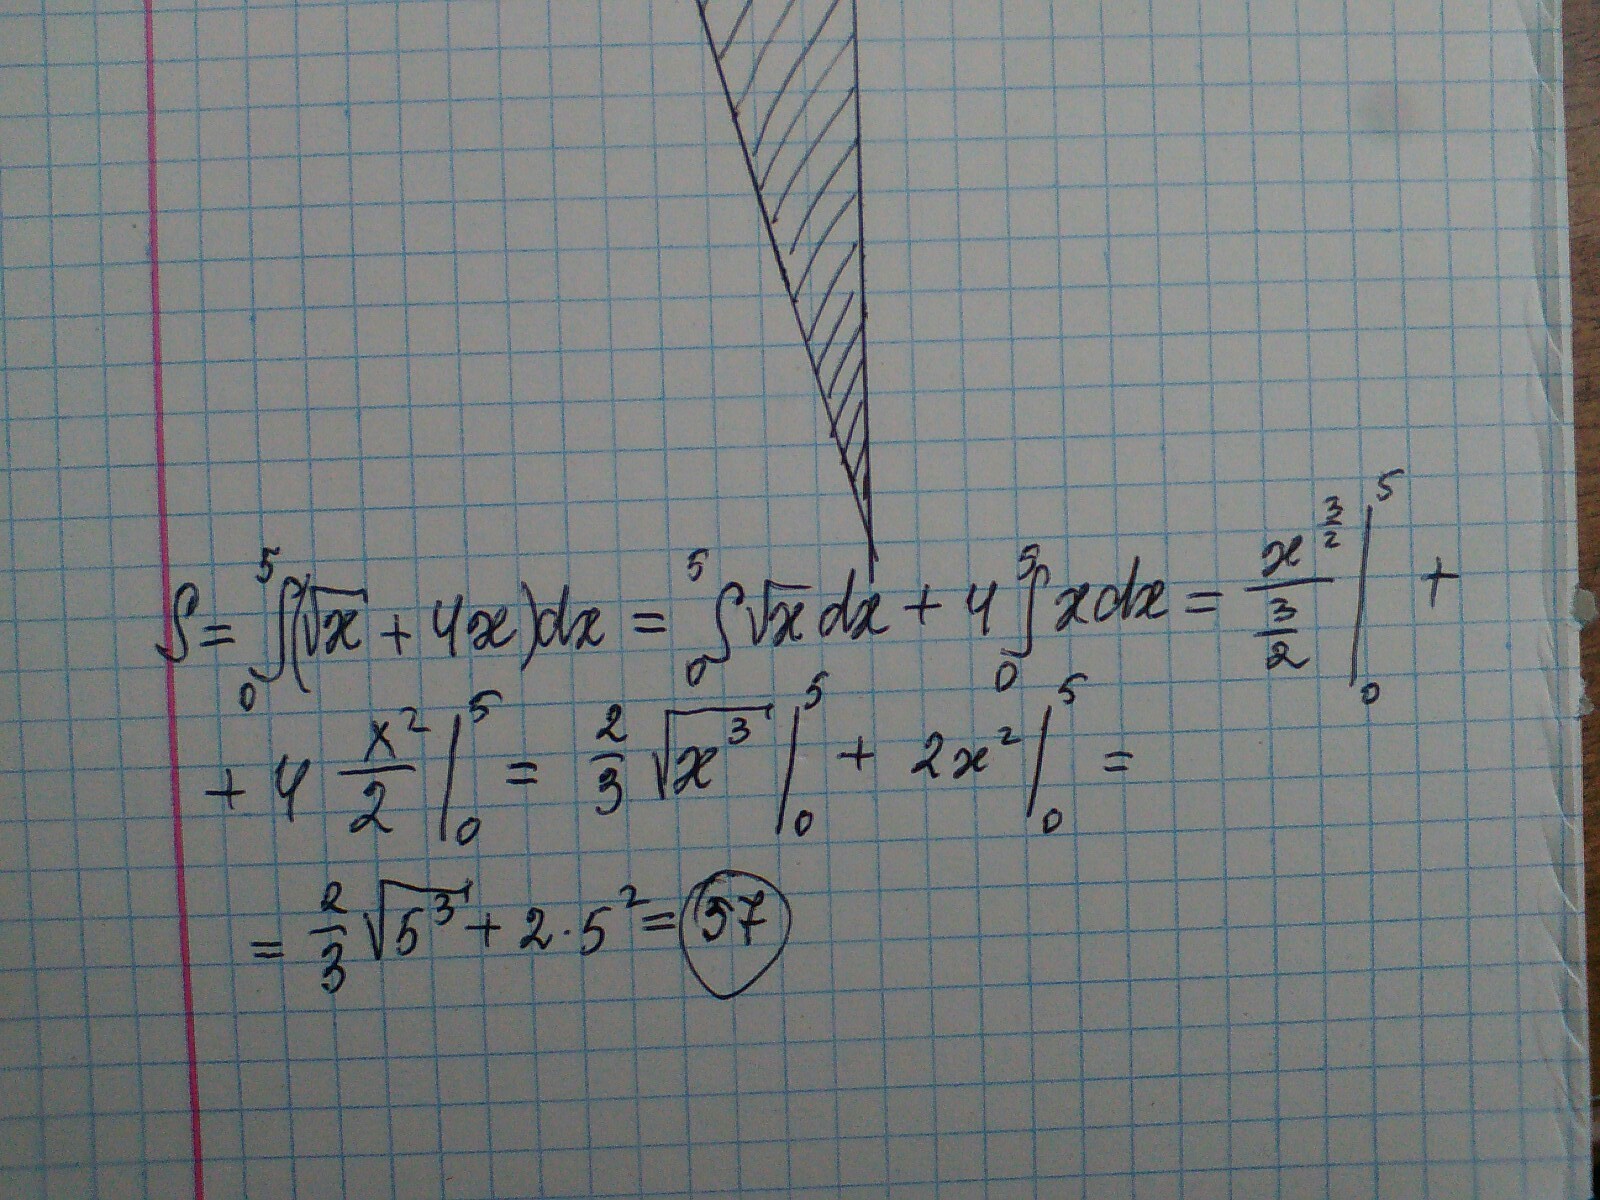 S = ∫₀⁵(√x + 4x)dx = ∫₀⁵ √x dx + 4 ∫₀⁵ x dx = x^(3/2) / (3/2) |₀⁵ +
+ 4 x²/2 |₀⁵ = 2/3 √x³ |₀⁵ + 2x² |₀⁵ =
= 2/3 √5³ + 2·5² = 57